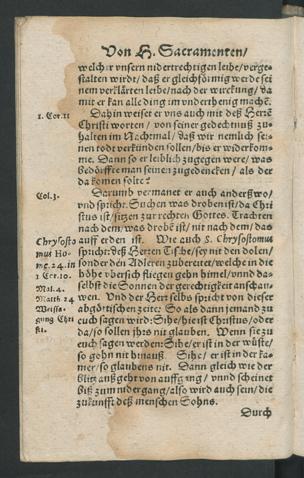 Von H. Sacramenten/
welcher vnsern nidertrechtigen leibe/ verge-
stalten wirdt/ daß er gleichförmig werde sei
nem verklärten leibe/ nach der wirckung/ da
mit er kan alle ding im vnderthenig machẽ.
1. Cor. 11
Dahin weiset er vns auch mit deß Herrẽ
Christi worten/ von seiner gedechtnuß zu-
halten im Nachtmal/ daß wir nemlich sei-
nen todt verkünden sollen/ bis er widerkom-
me. Dann so er leiblich zugegen were/ was
bedörffte man seiner zugedencken/ als der
da komen solte?
Col. 3.
Darumb vermanet er auch anderßwo/
vnd spricht: Suchen was droben ist/ da Chri
stus ist/ sitzen zur rechten Gottes. Trachten
nach dem/ was drobẽ ist/ nit nach dem/ das
Chrysosto
mus Ho-
mi. 24. in
1 Cor. 10.
Mal. 4.
Matth 24
Weissa-
gung Chri
sti.
auff erden ist. Wie auch S. Chrysostomus
spricht: deß Herren Tische/ sey nit den dolen/
sonder den Adlern zubereitet/ welche in die
höhe vbersich fliegen gehn himel/ vnnd da-
selbst die Sonnen der gerechtigkeit anschau
wen. Vnd der Herr selbs spricht von dieser
abgötischen zeite: So als dann jemand zu
euch sagen wird: Sihe/ hie ist Christus/ oder
da/ so sollen ihrs nit glauben. Wenn sie zu
euch sagen werden: Sihe/ er ist in der wüste/
so gehn nit hinauß. Sihe/ er ist in der ka-
mer/ so glaubens nit. Dann gleich wie der
blitz außgeht von auffgang/ vnnd scheinet
biß zum nidergang/ also wird auch sein/ die
zukunfft deß menschen Sohns.
Durch